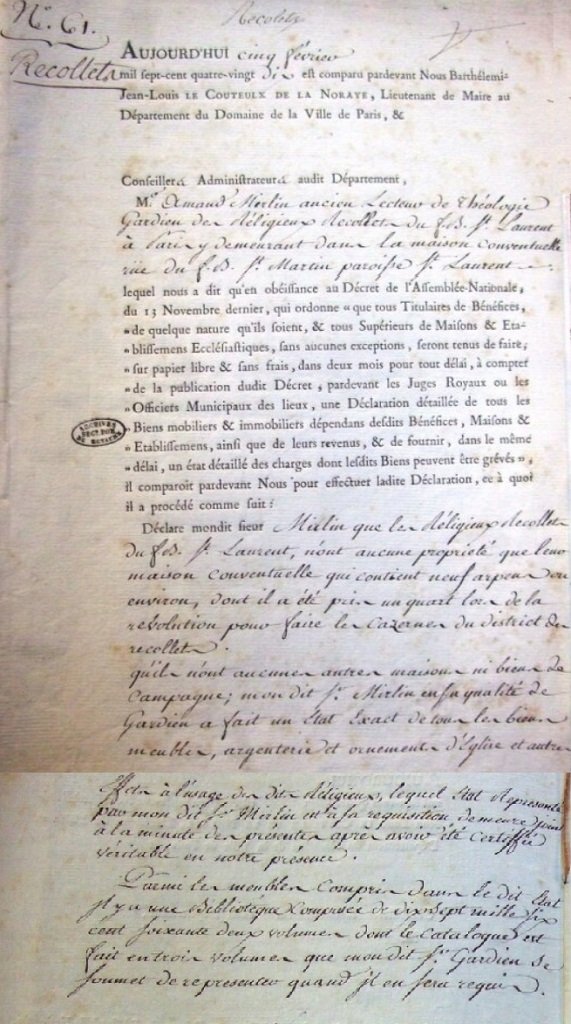 Recolets
N.° 61.
Recollets
AUJOURD'HUI cinq février
mil sept-cent quatre-vingt dix est comparu pardevant Nous Barthélemi-
Jean-Louis LE COUTEULX DE LA NORAYE, Lieutenant de Maire au
Département du Domaine de la Ville de Paris, &
Conseillers Administrateurs audit Département,
M.r Amand Mirlin ancien Lecteur de Théologie
Gardien des Réligieux Recollets du f.B. St. Laurent
à Paris y demeurant dans la maison conventuelle
rüe du f.B. St. Martin paroisse St. Laurent
lequel nous a dit qu'en obéissance au Décret de l'Assemblée-Nationale,
du 13 Novembre dernier, qui ordonne « que tous Titulaires de Bénéfices,
» de quelque nature qu'ils soient, & tous Supérieurs de Maisons & Eta-
» blissemens Ecclésiastiques, sans aucunes exceptions, seront tenus de faire,
» sur papier libre & sans frais, dans deux mois pour tout délai, à compter
» de la publication dudit Décret, pardevant les Juges Royaux ou les
» Officiers Municipaux des lieux, une Déclaration détaillée de tous les
» Biens mobiliers & immobiliers dépendans desdits Bénéfices, Maisons &
» Etablissemens, ainsi que de leurs revenus, & de fournir, dans le même
» délai, un état détaillé des charges dont lesdits Biens peuvent être grévés »,
il comparoît pardevant Nous pour effectuer ladite Déclaration, ce à quoi
il a procédé comme suit :
ARCHIVES
SECT. DOM.
DU ROYAUME
Déclare mondit sieur Mirlin que les Réligieux Recollets
du f.B. St. Laurent, n'ont aucune propriété que leur
maison conventuelle qui contient neuf arpens ou
environ, dont il a été pris un quart lors de la
révolution pour faire les Cazernes du district des
recollets.
qu'ils n'ont aucunes autres maisons ni biens de
Campagne; mon dit Sr. Mirlin en sa qualité de
Gardien a fait un Etat Exact de tous les biens
meubles, argenterie et ornemens d'Eglise et autres
à l'usage des dits Réligieux, lequel Etat Représenté
par mon dit Sr. Mirlin est à sa requisition demeuré joint
à la minute des présentes après avoir été Certiffié
véritable en notre présence.
Parmi les meubles Compris dans le dit Etat
jl y a une Bibliotèque Composée de dix sept mille six
cent soixante deux volumes dont le Catalogue est
fait en trois volumes que mon dit Sr. Gardien se
soumet de representer quand jl en sera requis.